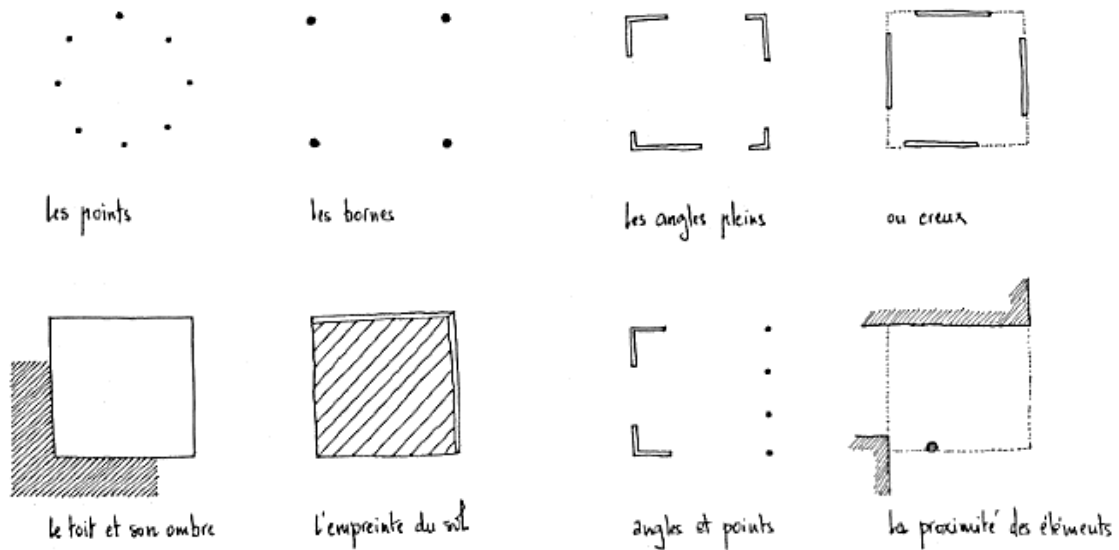 les points
les bornes
les angles pleins
ou creux
le toit et son ombre
l'empreinte du sol
angles et points
la proximité des éléments